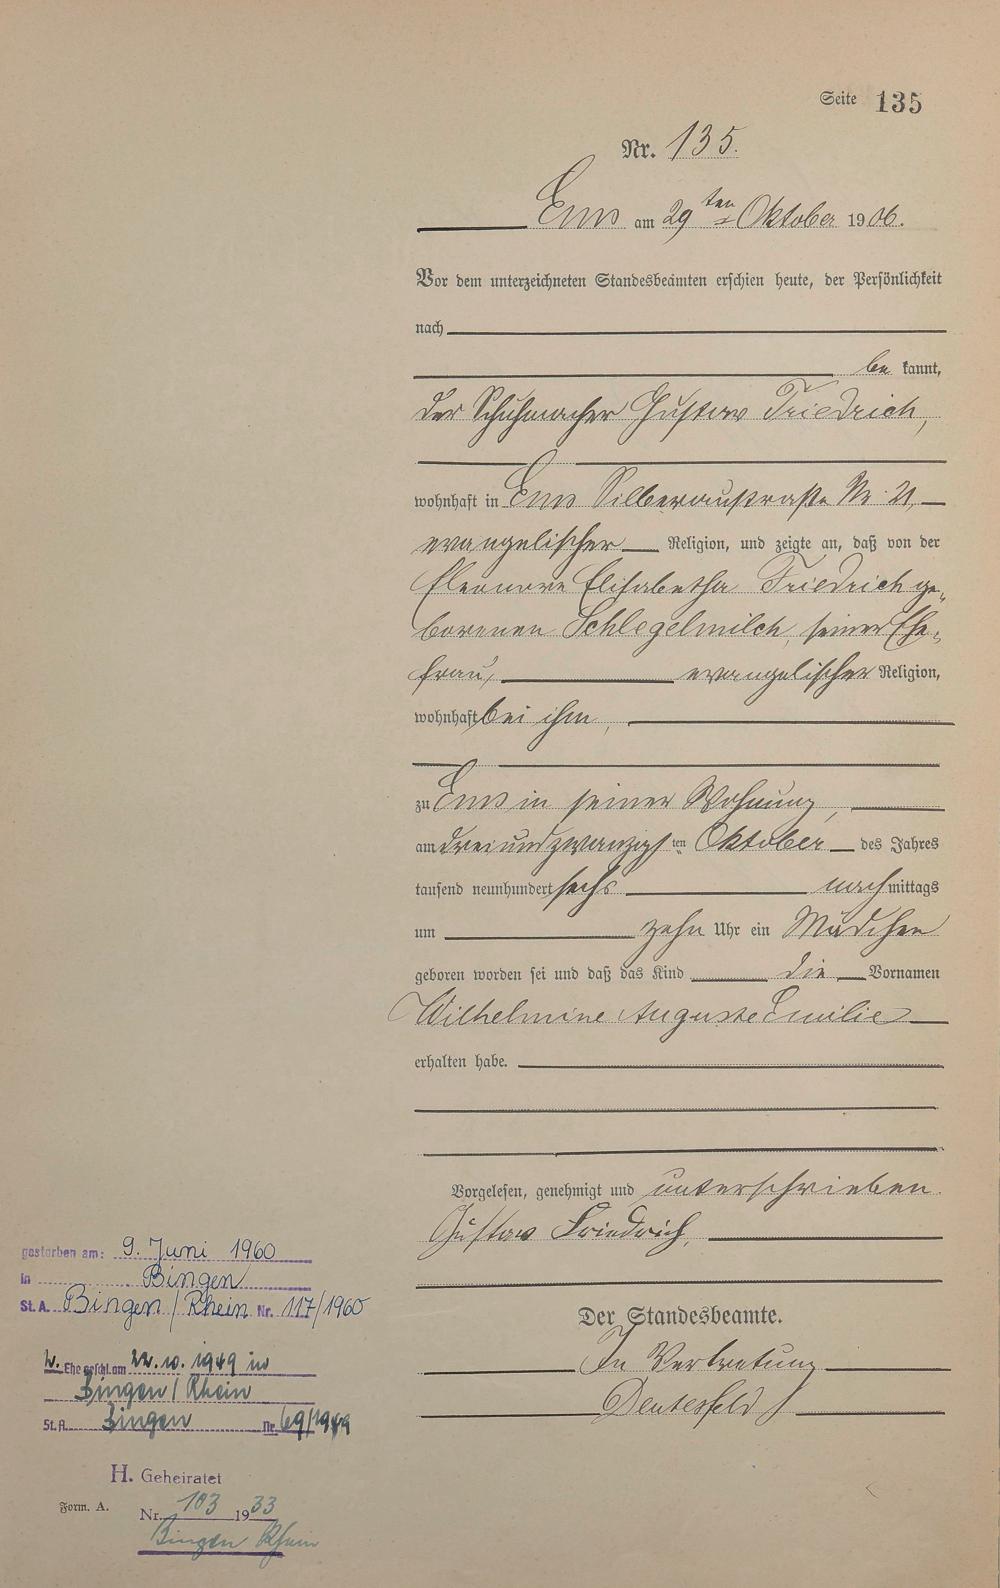 Seite 135
Nr. 135.
Ems am 29ten Oktober 1906.
Vor dem unterzeichneten Standesbeamten erschien heute, der Persönlichkeit
nach
be kannt,
der Schuhmacher Gustav Friedrich,
wohnhaft in Ems Silberaustraße Nr. 21,
evangelischer Religion, und zeigte an, daß von der
Eleonore Elisabetha Friedrich ge„
borenen Schlegelmilch, seiner Ehe„
frau, evangelischer Religion,
wohnhaft bei ihm,
zu Ems in seiner Wohnung,
am dreiundzwanzigsten Oktober des Jahres
tausend neunhundert sechs nachmittags
um zehn Uhr ein Mädchen
geboren worden sei und daß das Kind die Vornamen
Wilhelmine Auguste Emilie
erhalten habe.
Vorgelesen, genehmigt und unterschrieben.
Gustav Friedrich,
Der Standesbeamte.
In Vertretung
gestorben am: 9. Juni 1960
in Bingen
St. A. Bingen / Rhein Nr. 117/1960
2. Ehe geschl. am 22.10.1949 in
Bingen / Rhein
St. A. Bingen Nr. 69/1949
H. Geheiratet
Form. A.
Nr. 103 1933
Bingen Rhein